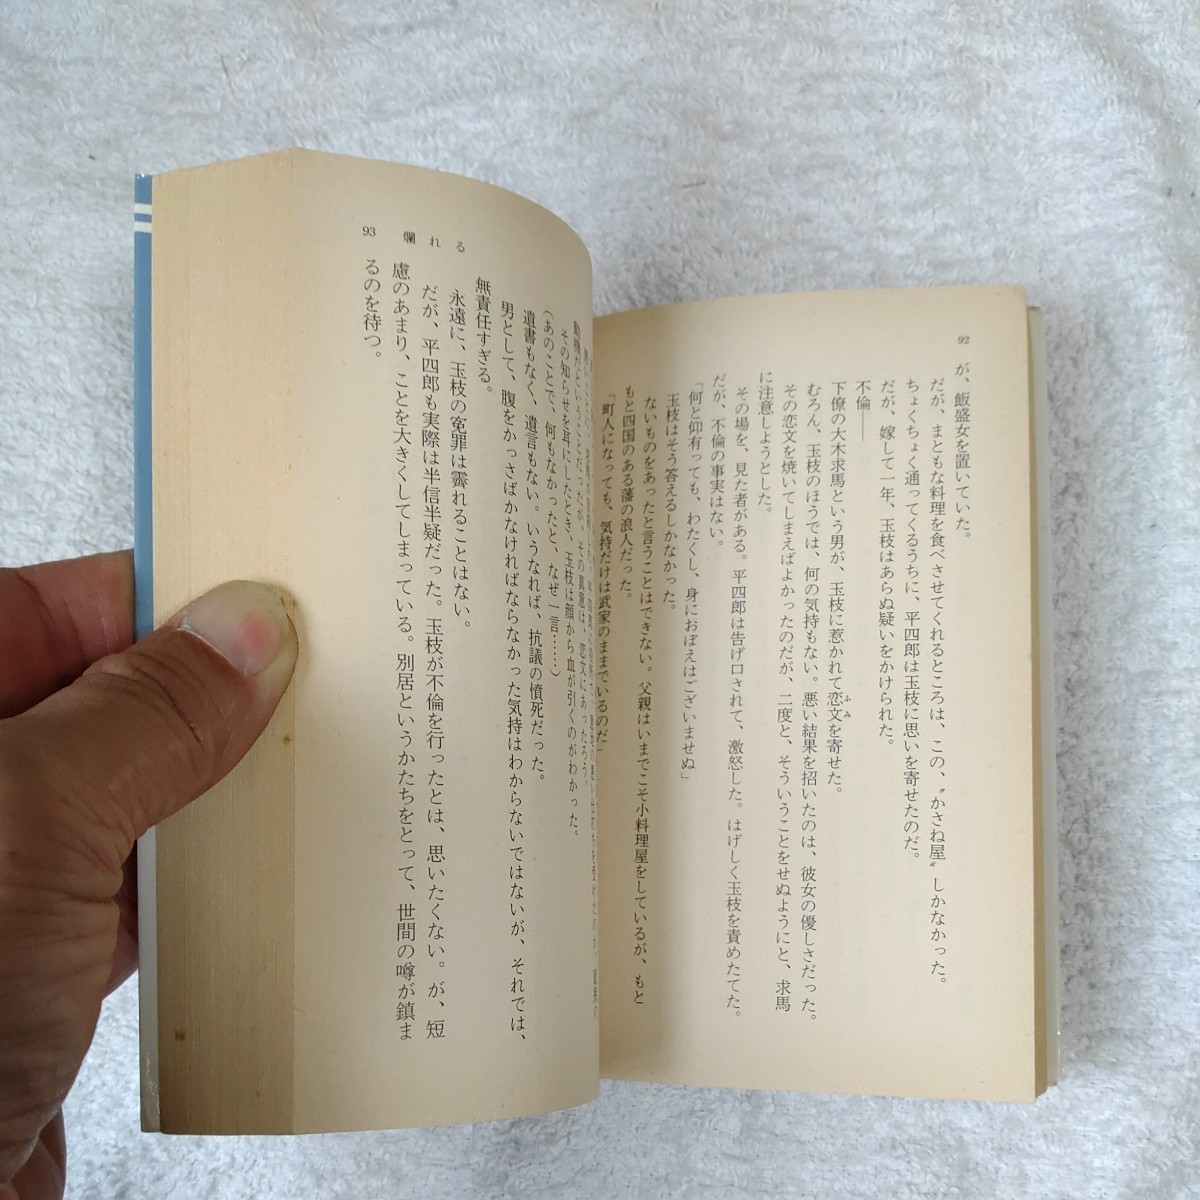 92
が、飯盛女を置いていた。
だが、まともな料理を食べさせてくれるところは、この、〝かさね屋〟しかなかった。
ちょくちょく通ってくるうちに、平四郎は玉枝に思いを寄せたのだ。
だが、嫁して一年、玉枝はあらぬ疑いをかけられた。
不倫――
下僚の大木求馬という男が、玉枝に惹かれて恋文を寄せた。
ふみ
むろん、玉枝のほうでは、何の気持もない。悪い結果を招いたのは、彼女の優しさだった。
その恋文を焼いてしまえばよかったのだが、二度と、そういうことをせぬようにと、求馬
に注意しようとした。
その場を、見た者がある。平四郎は告げ口されて、激怒した。はげしく玉枝を責めたてた。
だが、不倫の事実はない。
「何と仰有っても、わたくし、身におぼえはございませぬ」
玉枝はそう答えるしかなかった。
ないものをあったと言うことはできない。父親はいまでこそ小料理屋をしているが、もと
もと四国のある藩の浪人だった。
「町人になっても、気持だけは武家のままでいるのだ」
93 爛れる
動機だということだったが、その真意は、恋文にあったろう。
その知らせを耳にしたとき、玉枝は顔から血が引くのがわかった。
(あのことで、何もなかったと、なぜ一言……)
遺書もなく、遺言もない。いうなれば、抗議の憤死だった。
男として、腹をかっさばかなければならなかった気持はわからないではないが、それでは、
無責任すぎる。
永遠に、玉枝の冤罪は霽れることはない。
だが、平四郎も実際は半信半疑だった。玉枝が不倫を行ったとは、思いたくない。が、短
慮のあまり、ことを大きくしてしまっている。別居というかたちをとって、世間の噂が鎮ま
るのを待つ。